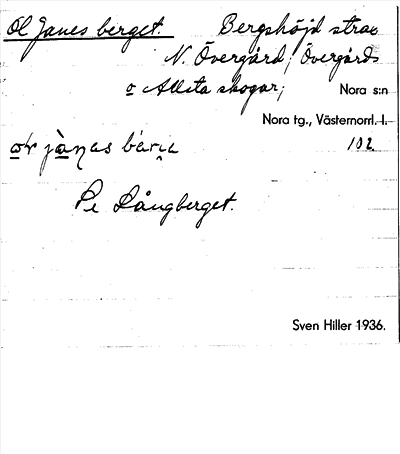 Ol Janes berget. Bergshöjd strax
N. Övergård, Övergårds
o Alleta skogar; Nora s:n
Nora tg., Västernorrl. l.
102
Pe Långberget.
Sven Hiller 1936.